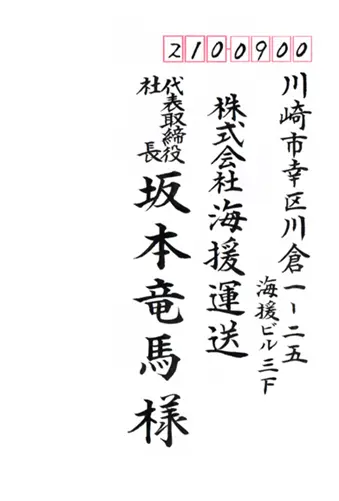 2100900
川崎市幸区川倉一ー二五
海援ビル三下
株式会社海援運送
代表取締役
社長
坂本竜馬様